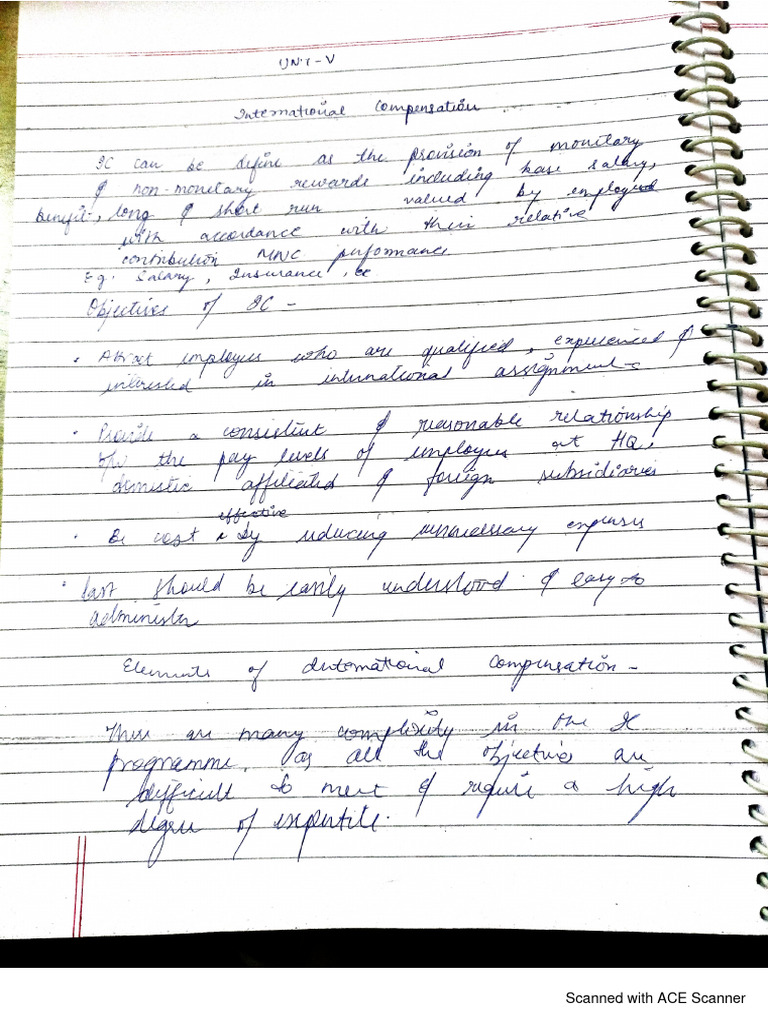 UNIT-V
International Compensation
IC can be define as the provision of monitary
& non-monetary rewards including base salary,
benefit, long & short run valued by employees
with accordance with their relative
contribution MNC performance
Eg: Salary, Insurance,
Objectives of IC -
• Attract employees who are qualified, experienced &
interested in international assignment
• Provide a consistent & reasonable relationship
b/w the pay levels of employees at HQ,
domestic affiliated & foreign subsidiaries
effective
• Be cost by reducing unnecessary expenses
• last should be easily understood & easy to
administer
Elements of International Compensation -
There are many complexity in the IC
programme. as all the objectives are
difficult to meet & require a high
degree of expertile.
Scanned with ACE Scanner